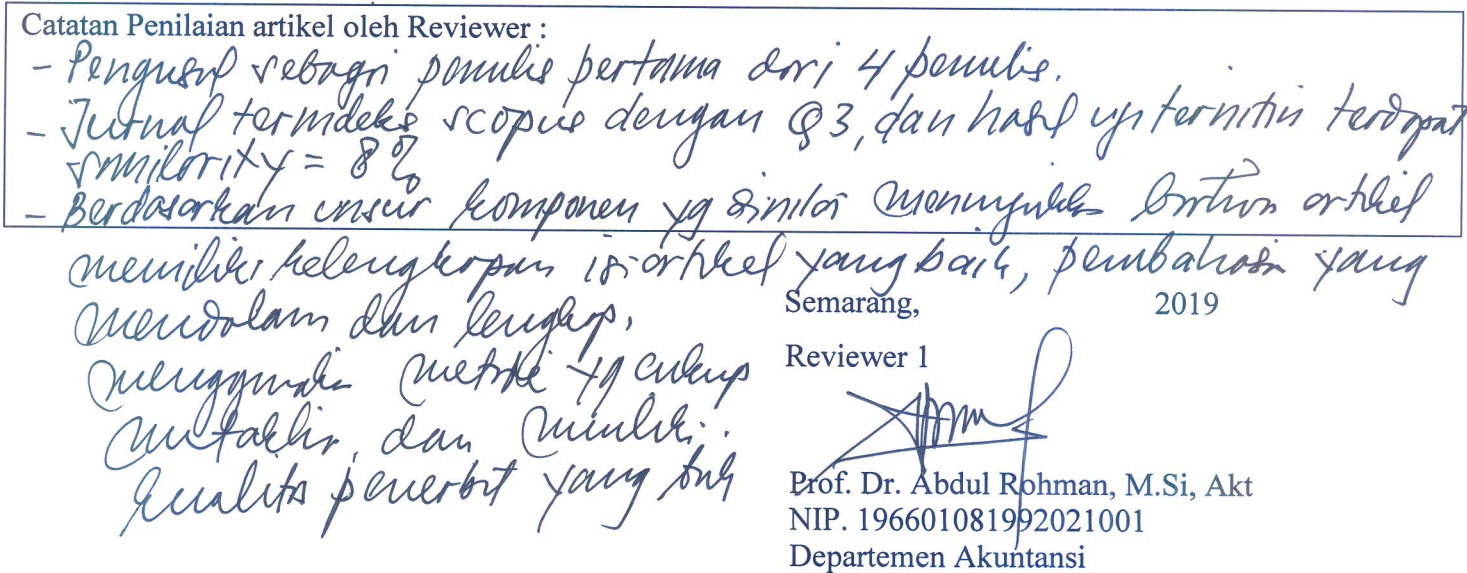 Catatan Penilaian artikel oleh Reviewer :
- Pengusul sebagai penulis pertama dari 4 penulis.
- Jurnal terindeks scopus dengan Q3, dan hasil uji turnitin terdapat
similarity = 8%
- Berdasarkan unsur komponen yg dinilai menunjukkan bahwa artikel
memiliki kelengkapan isi artikel yang baik, pembahasan yang
mendalam dan lengkap,
menggunakan metode yg cukup
mutakhir, dan memiliki
kualitas penerbit yang baik
Semarang, 2019
Reviewer 1
Prof. Dr. Abdul Rohman, M.Si, Akt
NIP. 196601081992021001
Departemen Akuntansi